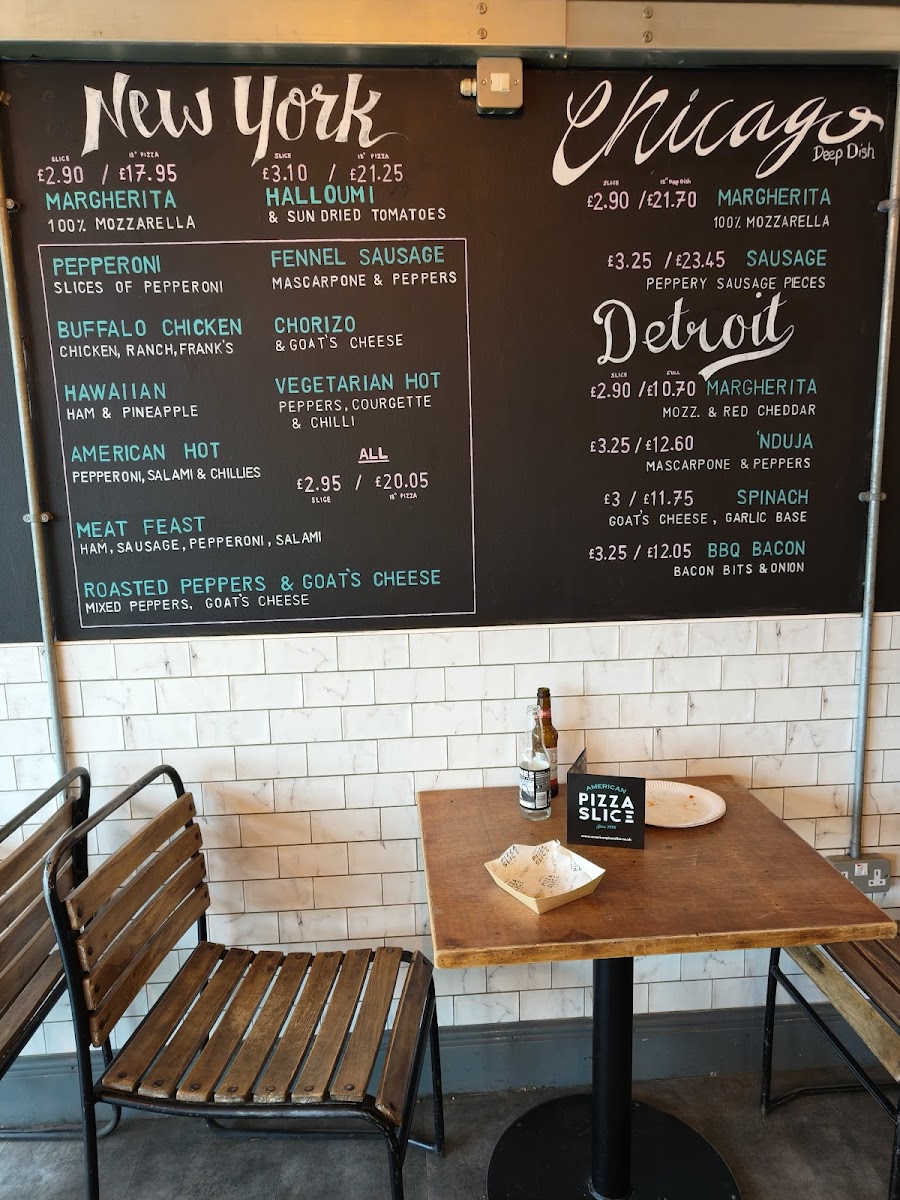 New York
SLICE 18" PIZZA
£2.90 / £17.95
MARGHERITA
100% MOZZARELLA
SLICE 18" PIZZA
£3.10 / £21.25
HALLOUMI
& SUN DRIED TOMATOES
PEPPERONI
SLICES OF PEPPERONI
BUFFALO CHICKEN
CHICKEN, RANCH, FRANK'S
HAWAIIAN
HAM & PINEAPPLE
AMERICAN HOT
PEPPERONI, SALAMI & CHILLIES
MEAT FEAST
HAM, SAUSAGE, PEPPERONI, SALAMI
ROASTED PEPPERS & GOAT'S CHEESE
MIXED PEPPERS, GOAT'S CHEESE
FENNEL SAUSAGE
MASCARPONE & PEPPERS
CHORIZO
& GOAT'S CHEESE
VEGETARIAN HOT
PEPPERS, COURGETTE
& CHILLI
ALL
£2.95 / £20.05
SLICE 18" PIZZA
Chicago
Deep Dish
SLICE 12" Deep Dish
£2.90 / £21.70 MARGHERITA
100% MOZZARELLA
£3.25 / £23.45 SAUSAGE
PEPPERY SAUSAGE PIECES
Detroit
SLICE FULL
£2.90 / £10.70 MARGHERITA
MOZZ. & RED CHEDDAR
£3.25 / £12.60 'NDUJA
MASCARPONE & PEPPERS
£3 / £11.75 SPINACH
GOAT'S CHEESE, GARLIC BASE
£3.25 / £12.05 BBQ BACON
BACON BITS & ONION
AMERICAN
PIZZA
SLICE
www.americanpizzaslice.co.uk
PIZZA
SLICE